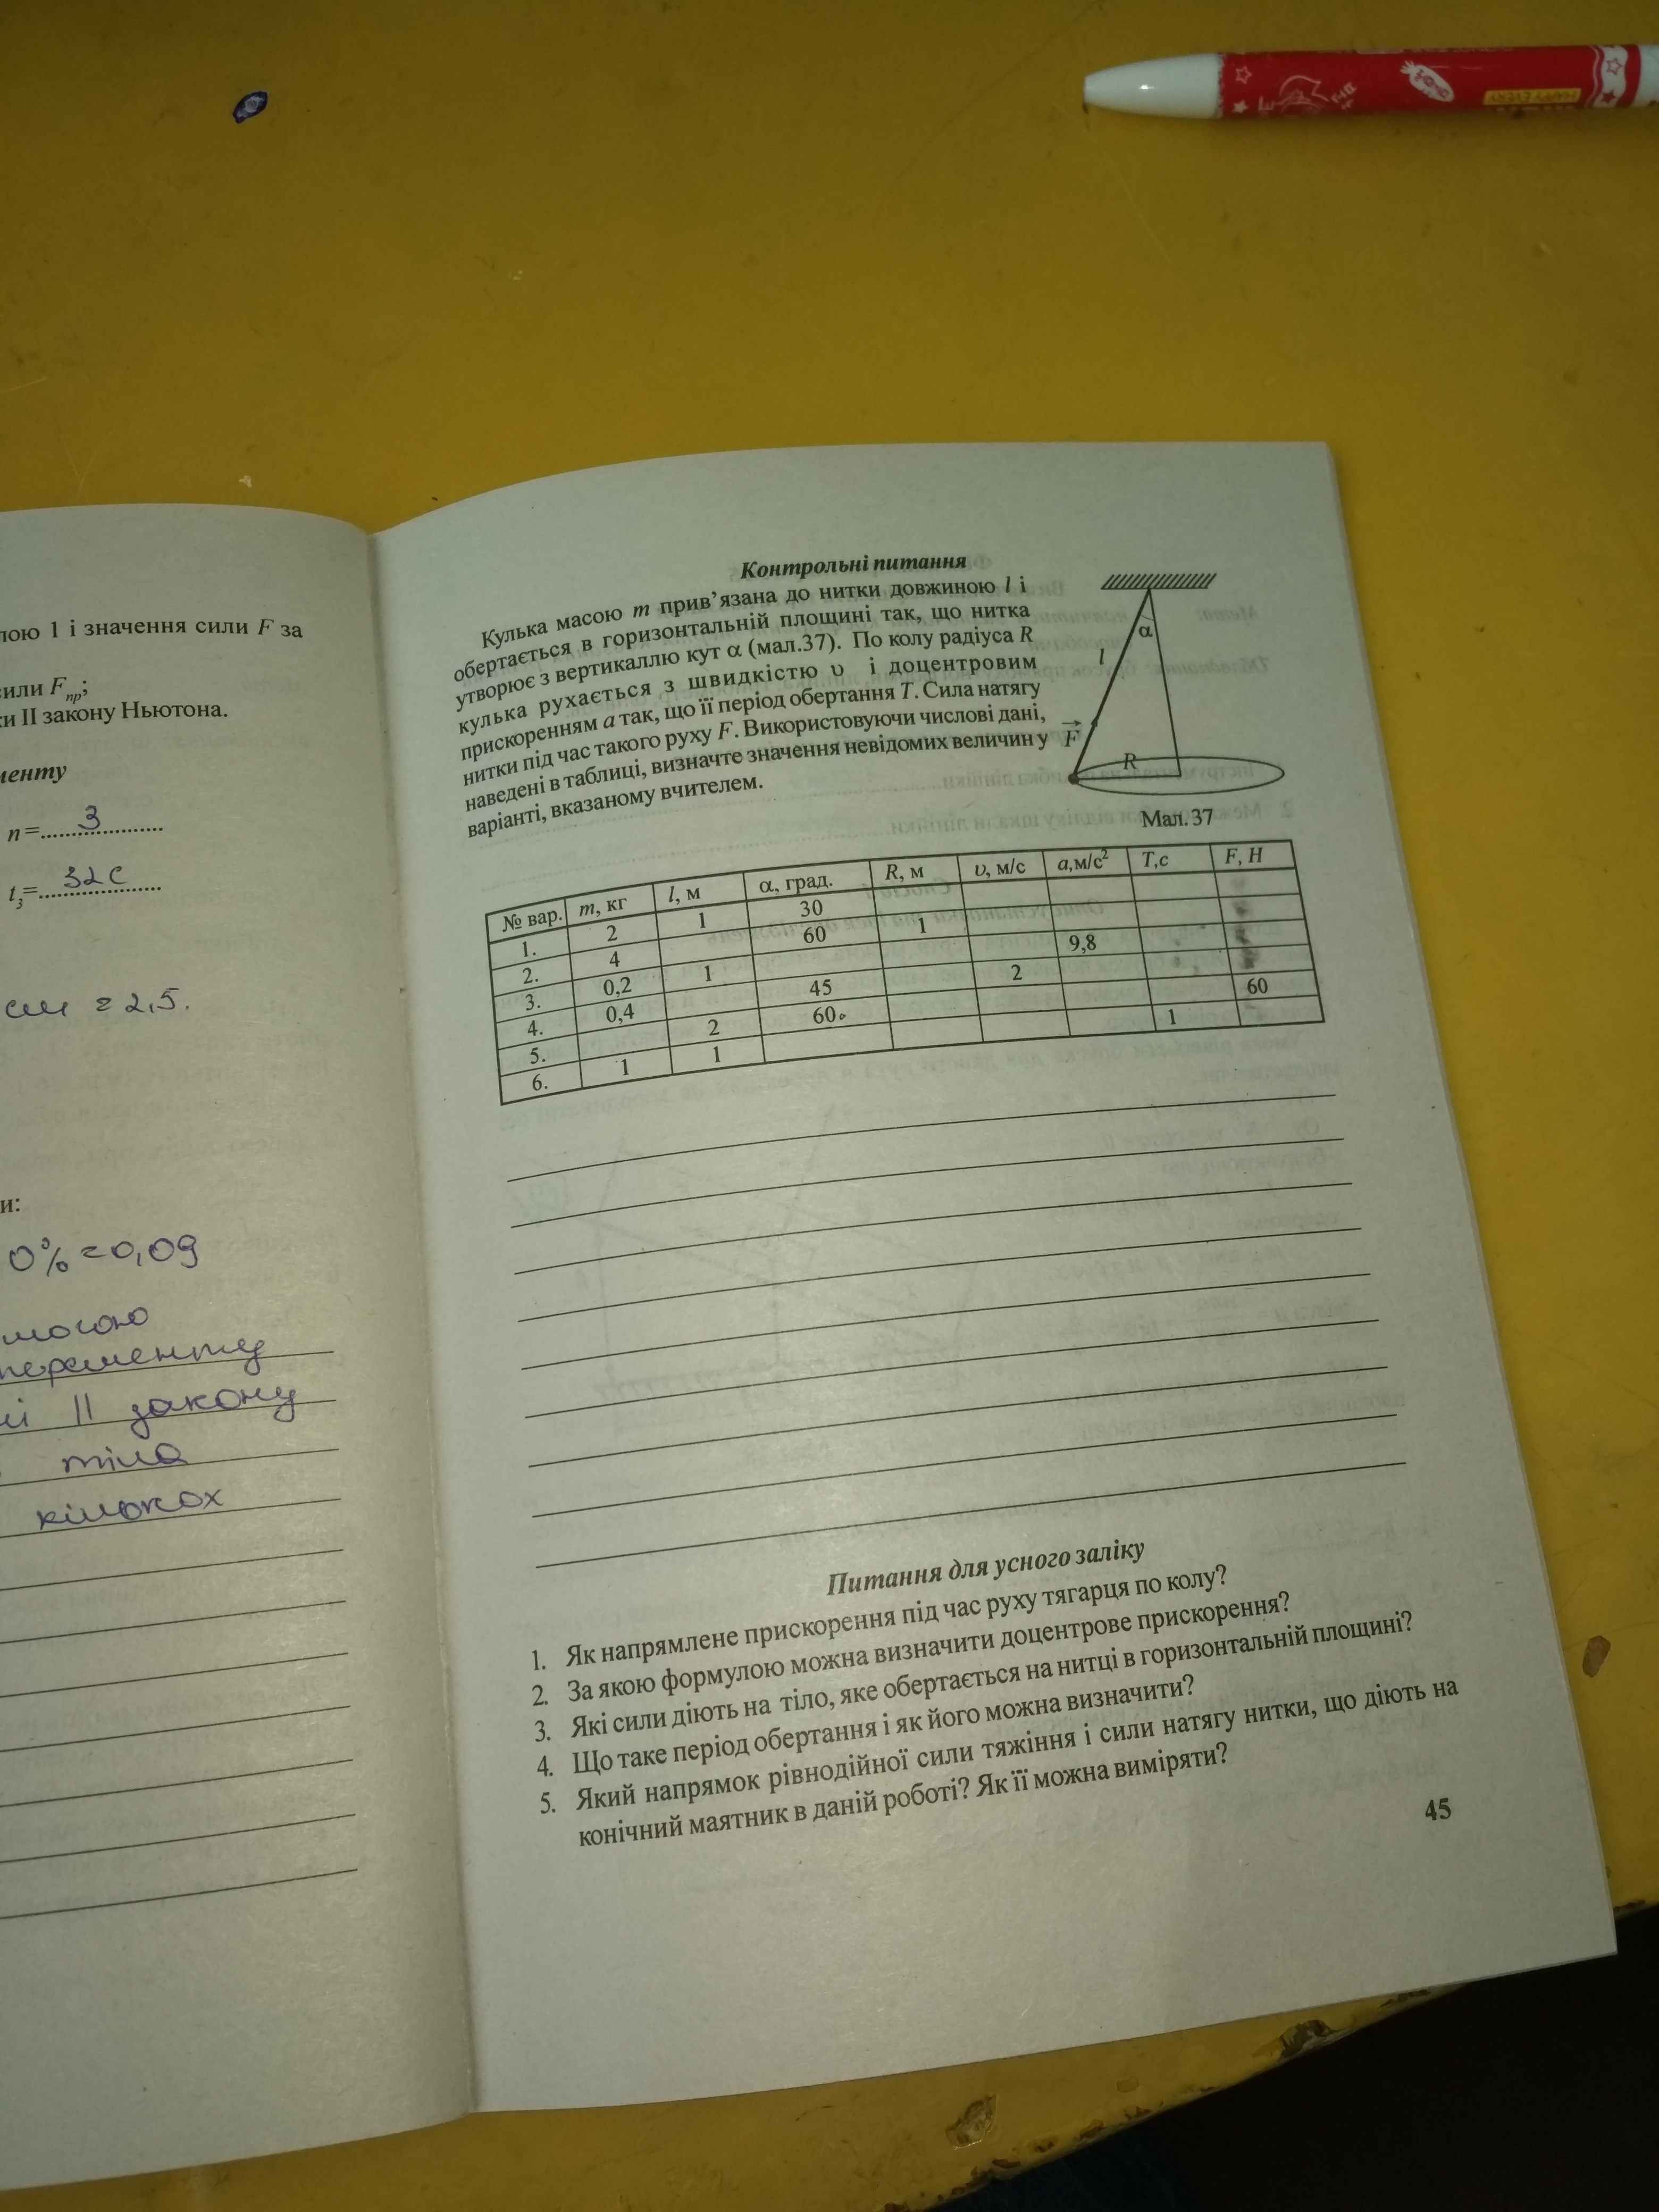 лою 1 і значення сили F за
сили Fпр;
ки ІІ закону Ньютона.
менту
n=........3........
t3=........32с........
см ≈ 2,5.
и:
0% ≈ 0,09
ІІ закону
тіла
кількох
Контрольні питання
Кулька масою m прив’язана до нитки довжиною l і
обертається в горизонтальній площині так, що нитка
утворює з вертикаллю кут α (мал.37). По колу радіуса R
кулька рухається з швидкістю υ і доцентровим
прискоренням a так, що її період обертання T. Сила натягу
нитки під час такого руху F. Використовуючи числові дані,
наведені в таблиці, визначте значення невідомих величин у
варіанті, вказаному вчителем.
α
l
F
R
Мал. 37
№ вар. m, кг l, м α, град. R, м υ, м/с a,м/с² T,с F, Н
1. 2 1 30
2. 4 60 1
3. 0,2 1 9,8
4. 0,4 45 2
5. 2 60 60
6. 1 1 1
Питання для усного заліку
1. Як напрямлене прискорення під час руху тягарця по колу?
2. За якою формулою можна визначити доцентрове прискорення?
3. Які сили діють на тіло, яке обертається на нитці в горизонтальній площині?
4. Що таке період обертання і як його можна визначити?
5. Який напрямок рівнодійної сили тяжіння і сили натягу нитки, що діють на
конічний маятник в даній роботі? Як її можна виміряти?
45